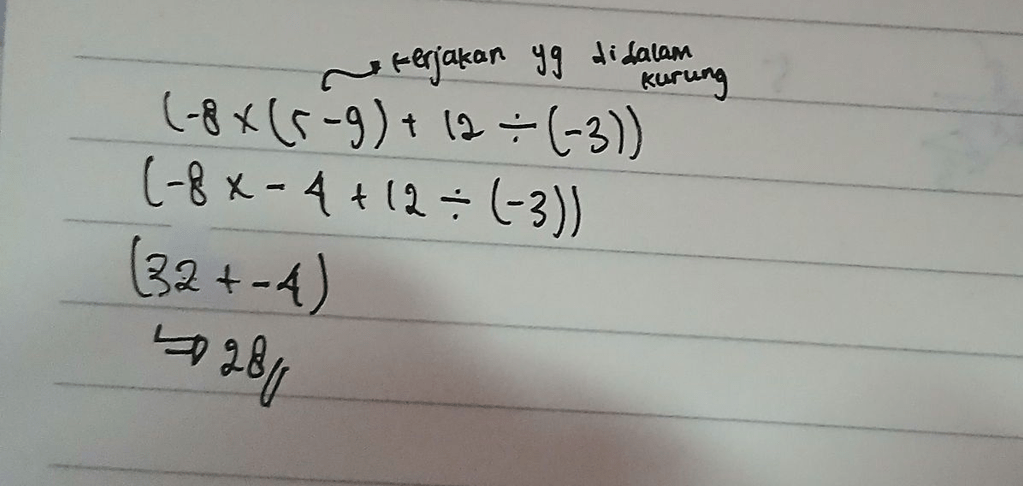 kerjakan yg didalam
kurung
(-8 × (5 -9) + 12 ÷ (-3))
(-8 × - 4 + 12 ÷ (-3))
(32 + -4)
⇒ 28//